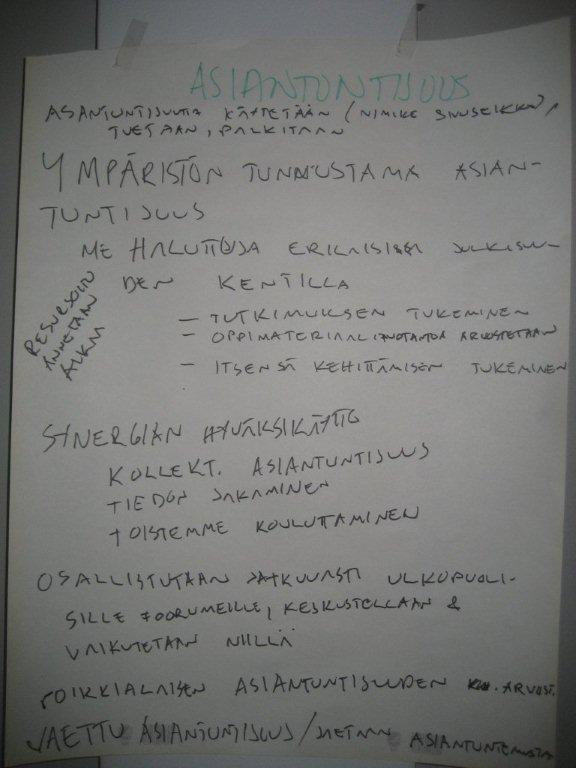 ASIANTUNTIJUUS
ASANTUNTIJUUTTA KÄYTETÄÄN (NIMIKE SIVUSEIKKA),
TUETAAN, PALKITAAN
YMPÄRISTÖN TUNNUSTAMA ASIAN-
TUNTIJUUS
ME HALUTTUJA ERILAISISSA JULKISUU-
DEN KENTILLÄ
RESURSOITU
ANNETAAN
AIKAA
– TUTKIMUKSEN TUKEMINEN
– OPPIMATERIAALITUOTANTOA ARVOSTETAAN
– ITSENSÄ KEHITTÄMISEN TUKEMINEN
SYNERGIAN HYVÄKSIKÄYTTÖ
KOLLEKT. ASIANTUNTIJUUS
TIEDON JAKAMINEN
TOISTEMME KOULUTTAMINEN
OSALLISTUTAAN JATKUVASTI ULKOPUOLI-
SILLE FOORUMEILLE, KESKUSTELLAAN &
VAIKUTETAAN NIILLÄ
POIKKIALAISEN ASIANTUNTIJUUDEN ARVOST.
JAETTU ASIANTUNTIJUUS / JAETAAN ASIANTUNTEMUSTA